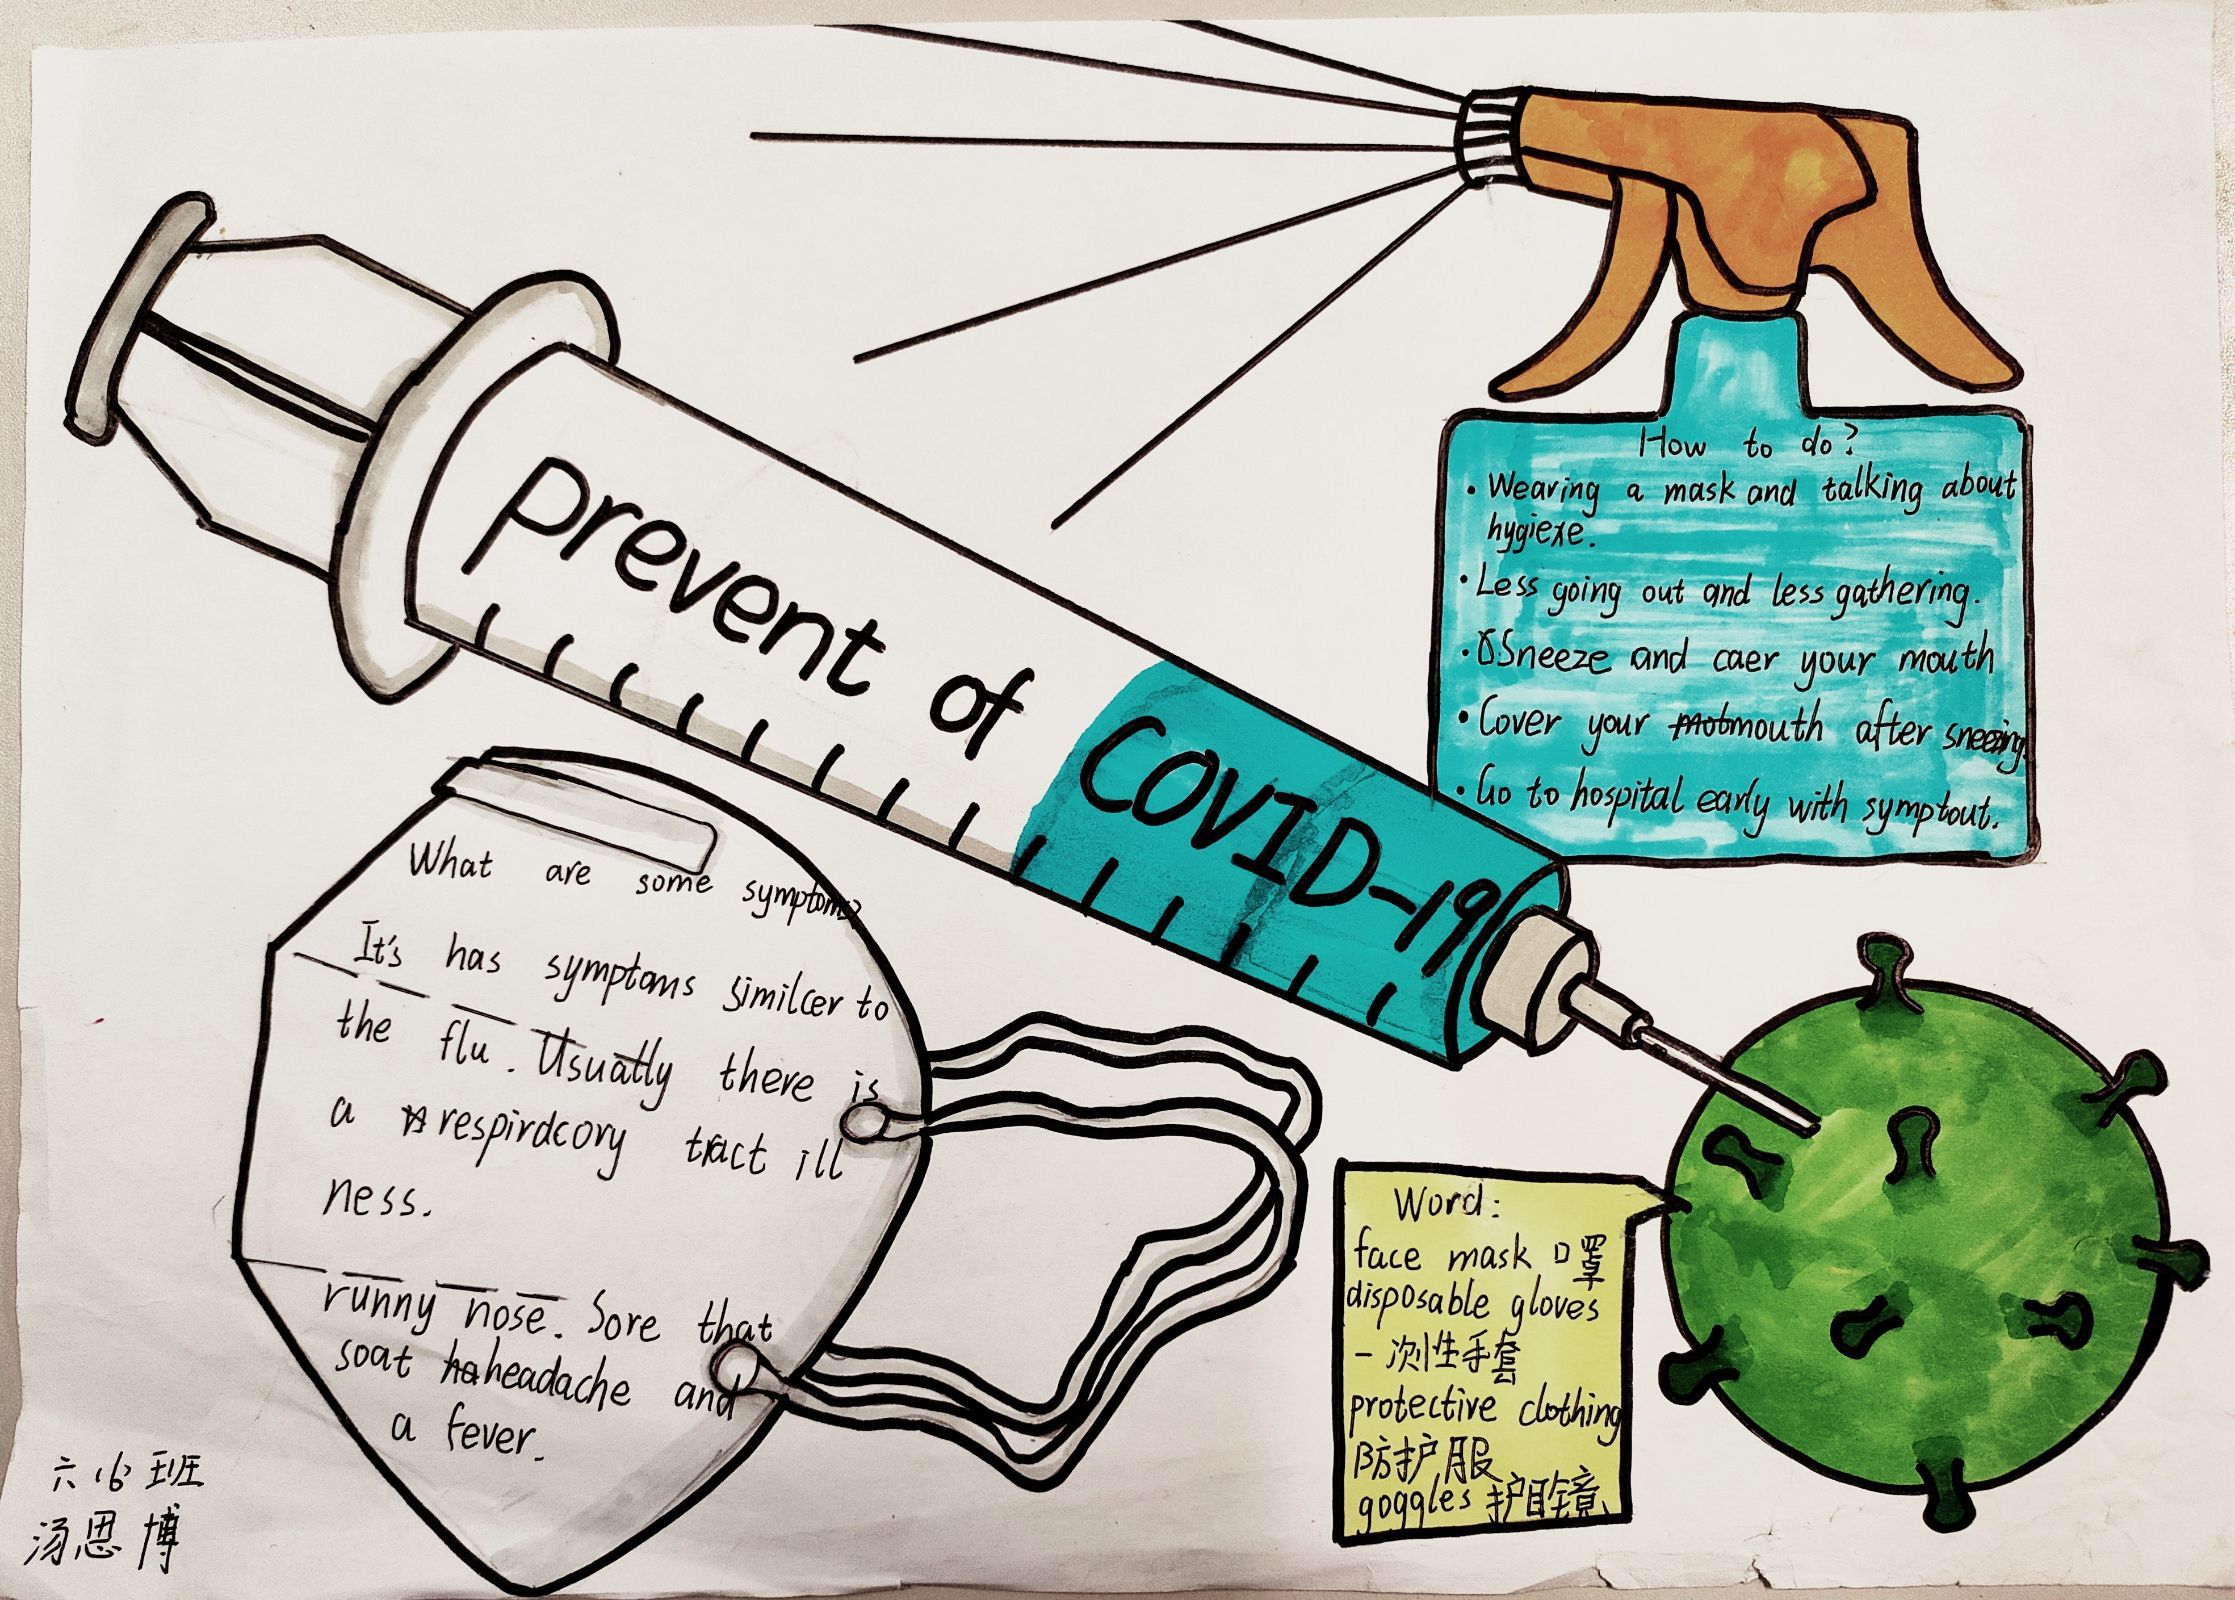 prevent of COVID-19
How to do?
• Wearing a mask and talking about
hygiexe.
• Less going out and less gathering.
• Sneeze and caer your mouth
• Cover your mouth after sneezing
• Go to hospital early with symptout.
What are some symptoms?
It's has symptoms similcer to
the flu. Usually there is
a respirdcory tract ill
ness.
runny nose. Sore that
soat headache and
a fever.
Word:
face mask 口罩
disposable gloves
一次性手套
protective clothing
防护服
goggles 护目镜
六(6)班
汤思博